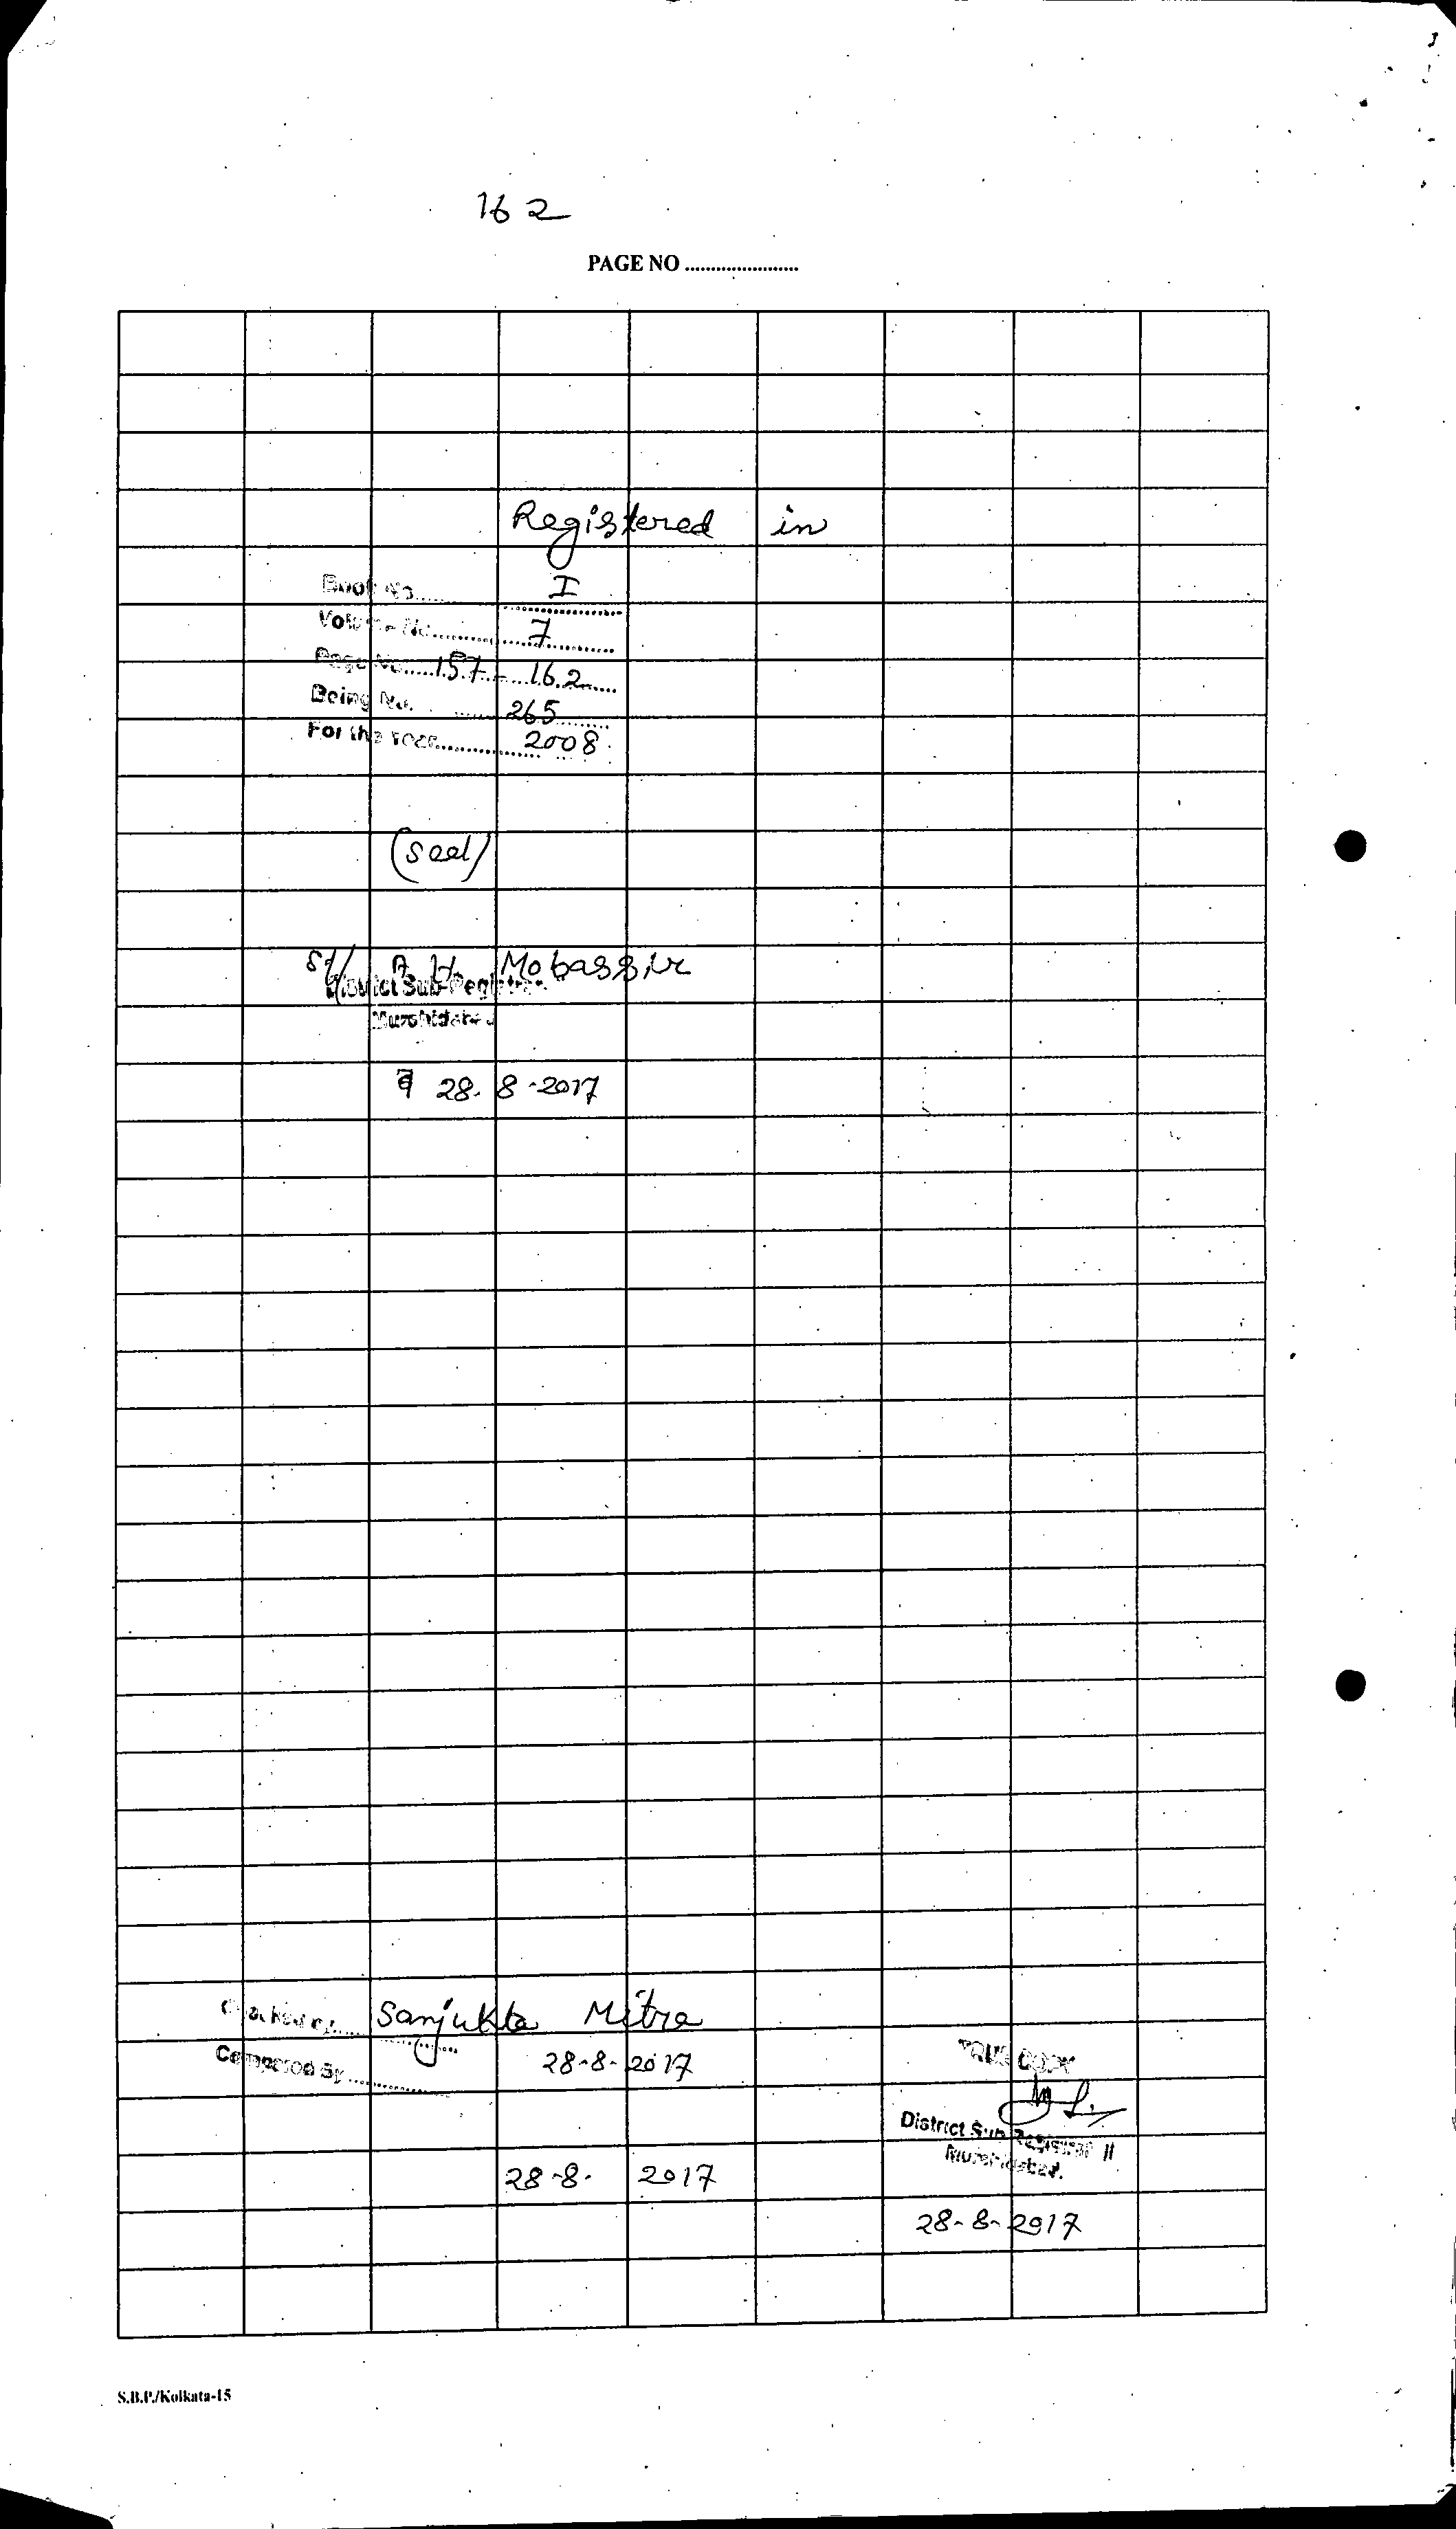 162
PAGE NO ......................
Registered in
Book No..... I
Volume No. 7
Page No. 157 - 162
Being No. 265
For the Year 2008
(seal)
Sd/ A. H. Mobassir
District Sub-Registrar
Murshidabad
28.8-2017
Checked by Sanjukta Mitra
28-8-2017
Compared By
TRUE COPY
District Sub Registrar II
Murshidabad.
28-8-2017
28-8-2017
S.B.P./Kolkata-15